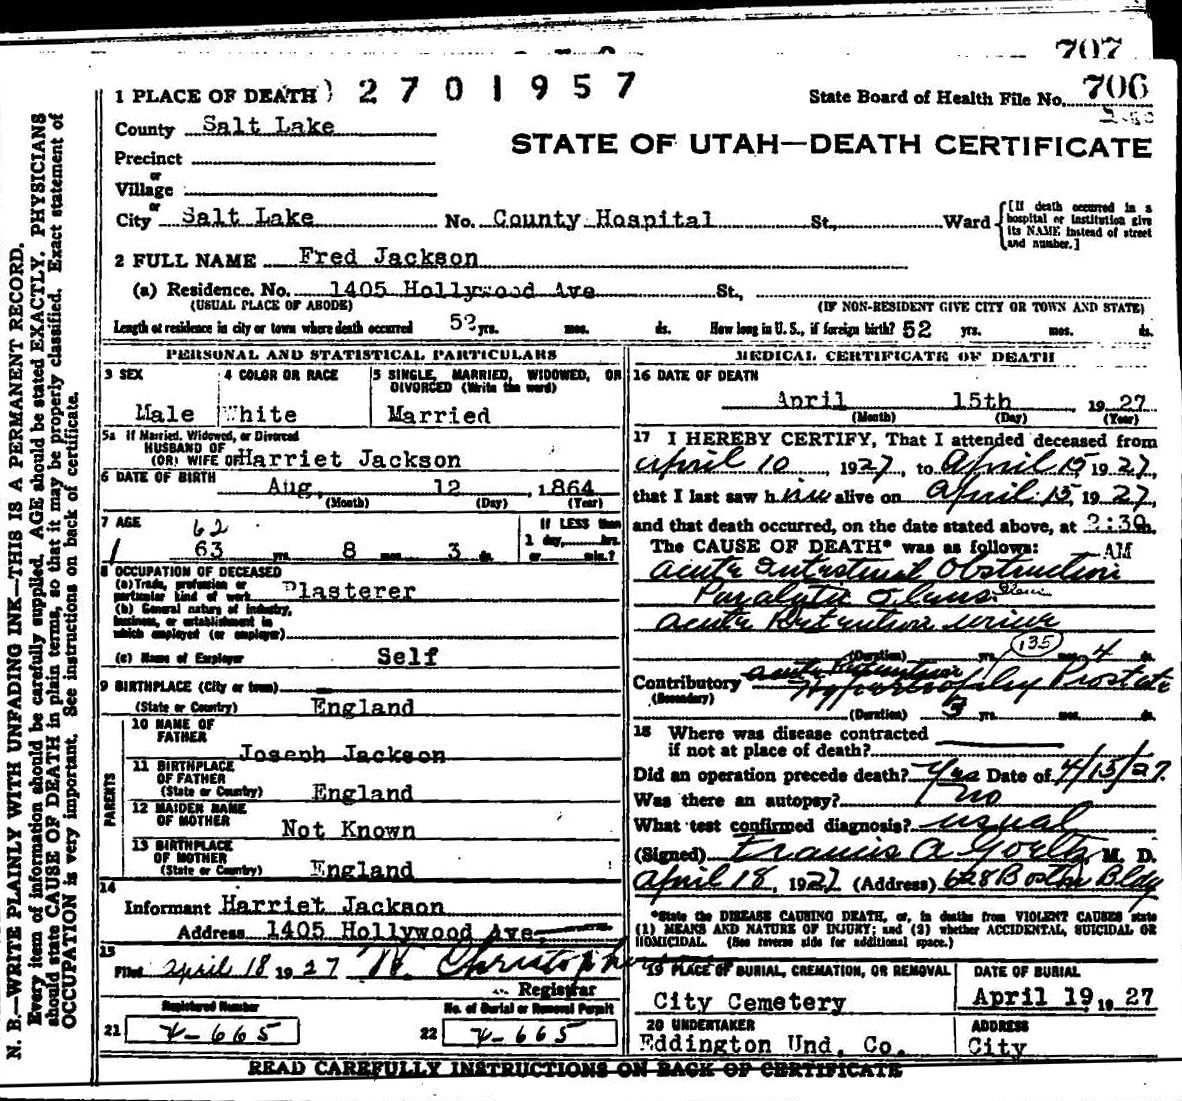 707
1 PLACE OF DEATH 2 7 0 1 9 5 7
State Board of Health File No. 706
County Salt Lake
STATE OF UTAH—DEATH CERTIFICATE
Precinct
or
Village
or
City Salt Lake No. County Hospital St., Ward
[If death occurred in a hospital or institution give its NAME instead of street and number.]
2 FULL NAME Fred Jackson
(a) Residence. No. 1405 Hollywood Ave St.,
(USUAL PLACE OF ABODE) (IF NON-RESIDENT GIVE CITY OR TOWN AND STATE)
Length of residence in city or town where death occurred 52 yrs. mos. ds. How long in U. S., if foreign birth? 52 yrs. mos. ds.
PERSONAL AND STATISTICAL PARTICULARS
3 SEX 4 COLOR OR RACE 5 SINGLE, MARRIED, WIDOWED, OR DIVORCED (Write the word)
Male White Married
5a If Married, Widowed, or Divorced
HUSBAND OF
(OR) WIFE OF Harriet Jackson
6 DATE OF BIRTH Aug. 12, 1864
(Month) (Day) (Year)
7 AGE 62
63 yrs. 8 mos. 3 ds.
If LESS than
1 day, hrs.
or min.?
8 OCCUPATION OF DECEASED
(a) Trade, profession or
particular kind of work Plasterer
(b) General nature of industry,
business, or establishment in
which employed (or employer)
(c) Name of Employer Self
9 BIRTHPLACE (City or town)
(State or Country) England
PARENTS
10 NAME OF
FATHER Joseph Jackson
11 BIRTHPLACE
OF FATHER
(State or Country) England
12 MAIDEN NAME
OF MOTHER Not Known
13 BIRTHPLACE
OF MOTHER
(State or Country) England
14
Informant Harriet Jackson
Address 1405 Hollywood Ave.
15
Filed April 18 1927
Registrar
Registered Number No. of Burial or Removal Permit
21 4-665 22 4-665
MEDICAL CERTIFICATE OF DEATH
16 DATE OF DEATH
April 15th, 1927
(Month) (Day) (Year)
17 I HEREBY CERTIFY, That I attended deceased from
April 10, 1927, to April 15 1927,
that I last saw him alive on April 15, 1927,
and that death occurred, on the date stated above, at 2:30 m.
The CAUSE OF DEATH* was as follows: AM
Acute Intestinal Obstruction
Paralytic Ileus
Acute Retention urine
135
(Duration) yrs. mos. 4 ds.
Contributory Acute Retention
(Secondary) Hypertrophy Prostate
(Duration) 3 yrs. mos. ds.
18 Where was disease contracted
if not at place of death?
Did an operation precede death? Yes Date of 4/15/27.
Was there an autopsy? No
What test confirmed diagnosis? usual
(Signed) Francis A Goeltz M. D.
April 18, 1927 (Address) 628 Boston Bldg
*State the DISEASE CAUSING DEATH, or, in deaths from VIOLENT CAUSES state
(1) MEANS AND NATURE OF INJURY; and (2) whether ACCIDENTAL, SUICIDAL OR
HOMICIDAL. (See reverse side for additional space.)
19 PLACE OF BURIAL, CREMATION, OR REMOVAL DATE OF BURIAL
City Cemetery April 19, 1927
20 UNDERTAKER ADDRESS
Eddington Und. Co. City
READ CAREFULLY INSTRUCTIONS ON BACK OF CERTIFICATE
N. B.—WRITE PLAINLY WITH UNFADING INK—THIS IS A PERMANENT RECORD.
Every item of information should be carefully supplied. AGE should be stated EXACTLY. PHYSICIANS
should state CAUSE OF DEATH in plain terms, so that it may be properly classified. Exact statement of
OCCUPATION is very important. See instructions on back of certificate.